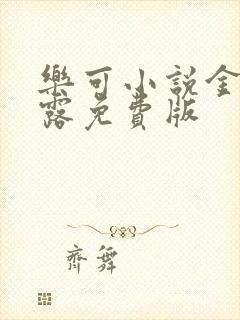 樂可小說金
露免費版
齊舞